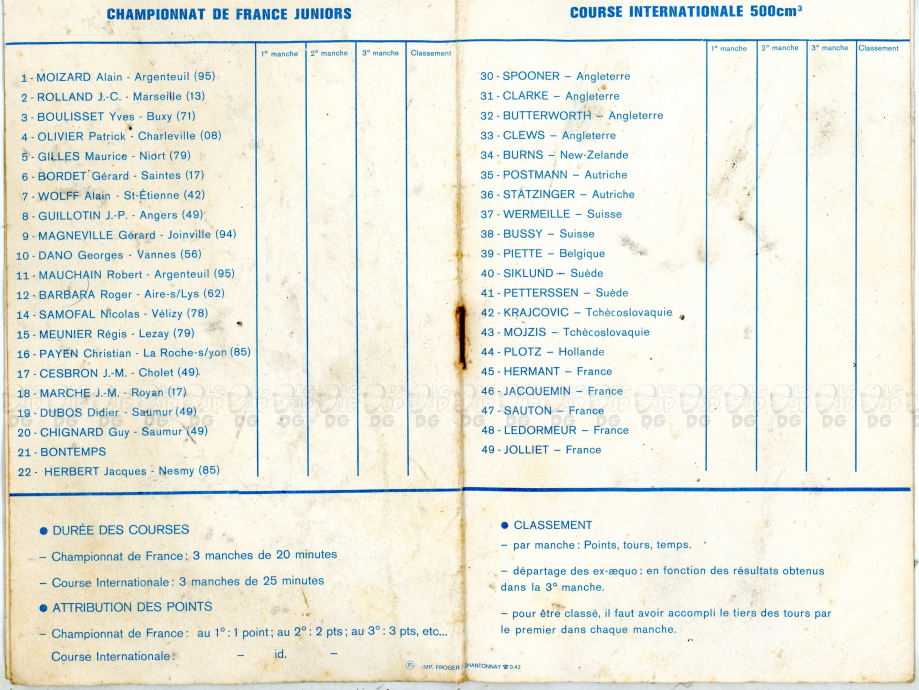 CHAMPIONNAT DE FRANCE JUNIORS
1º manche 2º manche 3º manche Classement
1 - MOIZARD Alain - Argenteuil (95)
2 - ROLLAND J.-C. - Marseille (13)
3 - BOULISSET Yves - Buxy (71)
4 - OLIVIER Patrick - Charleville (08)
5 - GILLES Maurice - Niort (79)
6 - BORDET Gérard - Saintes (17)
7 - WOLFF Alain - St-Étienne (42)
8 - GUILLOTIN J.-P. - Angers (49)
9 - MAGNEVILLE Gérard - Joinville (94)
10 - DANO Georges - Vannes (56)
11 - MAUCHAIN Robert - Argenteuil (95)
12 - BARBARA Roger - Aire-s/Lys (62)
14 - SAMOFAL Nicolas - Vélizy (78)
15 - MEUNIER Régis - Lezay (79)
16 - PAYEN Christian - La Roche-s/yon (85)
17 - CESBRON J.-M. - Cholet (49)
18 - MARCHE J.-M. - Royan (17)
19 - DUBOS Didier - Saumur (49)
20 - CHIGNARD Guy - Saumur (49)
21 - BONTEMPS
22 - HERBERT Jacques - Nesmy (85)
COURSE INTERNATIONALE 500cm³
1º manche 2º manche 3º manche Classement
30 - SPOONER – Angleterre
31 - CLARKE – Angleterre
32 - BUTTERWORTH – Angleterre
33 - CLEWS – Angleterre
34 - BURNS – New-Zelande
35 - POSTMANN – Autriche
36 - STATZINGER – Autriche
37 - WERMEILLE – Suisse
38 - BUSSY – Suisse
39 - PIETTE – Belgique
40 - SIKLUND – Suède
41 - PETTERSSEN – Suède
42 - KRAJCOVIC – Tchècoslovaquie
43 - MOJZIS – Tchècoslovaquie
44 - PLOTZ – Hollande
45 - HERMANT – France
46 - JACQUEMIN – France
47 - SAUTON – France
48 - LEDORMEUR – France
49 - JOLLIET – France
● DURÉE DES COURSES
– Championnat de France : 3 manches de 20 minutes
– Course Internationale : 3 manches de 25 minutes
● ATTRIBUTION DES POINTS
– Championnat de France : au 1º : 1 point ; au 2º : 2 pts ; au 3º : 3 pts, etc...
Course Internationale : – id. –
● CLASSEMENT
– par manche : Points, tours, temps.
– départage des ex-æquo : en fonction des résultats obtenus
dans la 3º manche.
– pour être classé, il faut avoir accompli le tiers des tours par
le premier dans chaque manche.
IMP. FROGER / CHANTONNAY ☎ 0.42